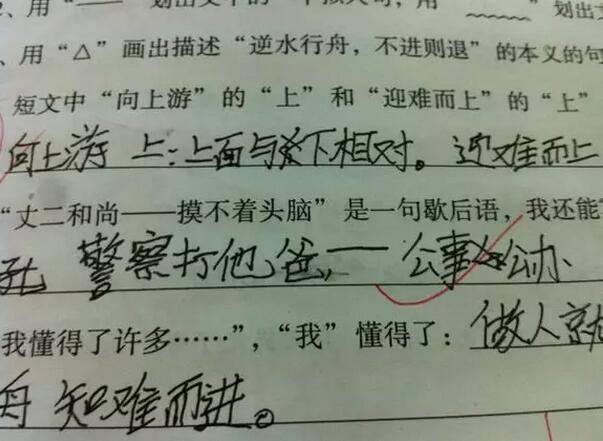 、用“——”划出文中的一个
、用“△”画出描述“逆水行舟，不进则退”的本义的句
短文中“向上游”的“上”和“迎难而上”的“上”
向上游 上：上面与下相对。迎难而上
“丈二和尚——摸不着头脑”是一句歇后语，我还能
警察打他爸，——公事公办
我懂得了许多……”，“我”懂得了：做人就
舟 知难而进。